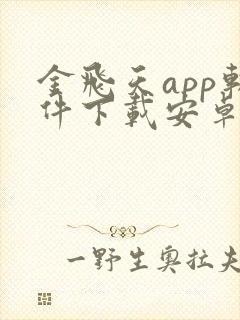 金飛天app軟
件下載安卓
一野生奧拉夫